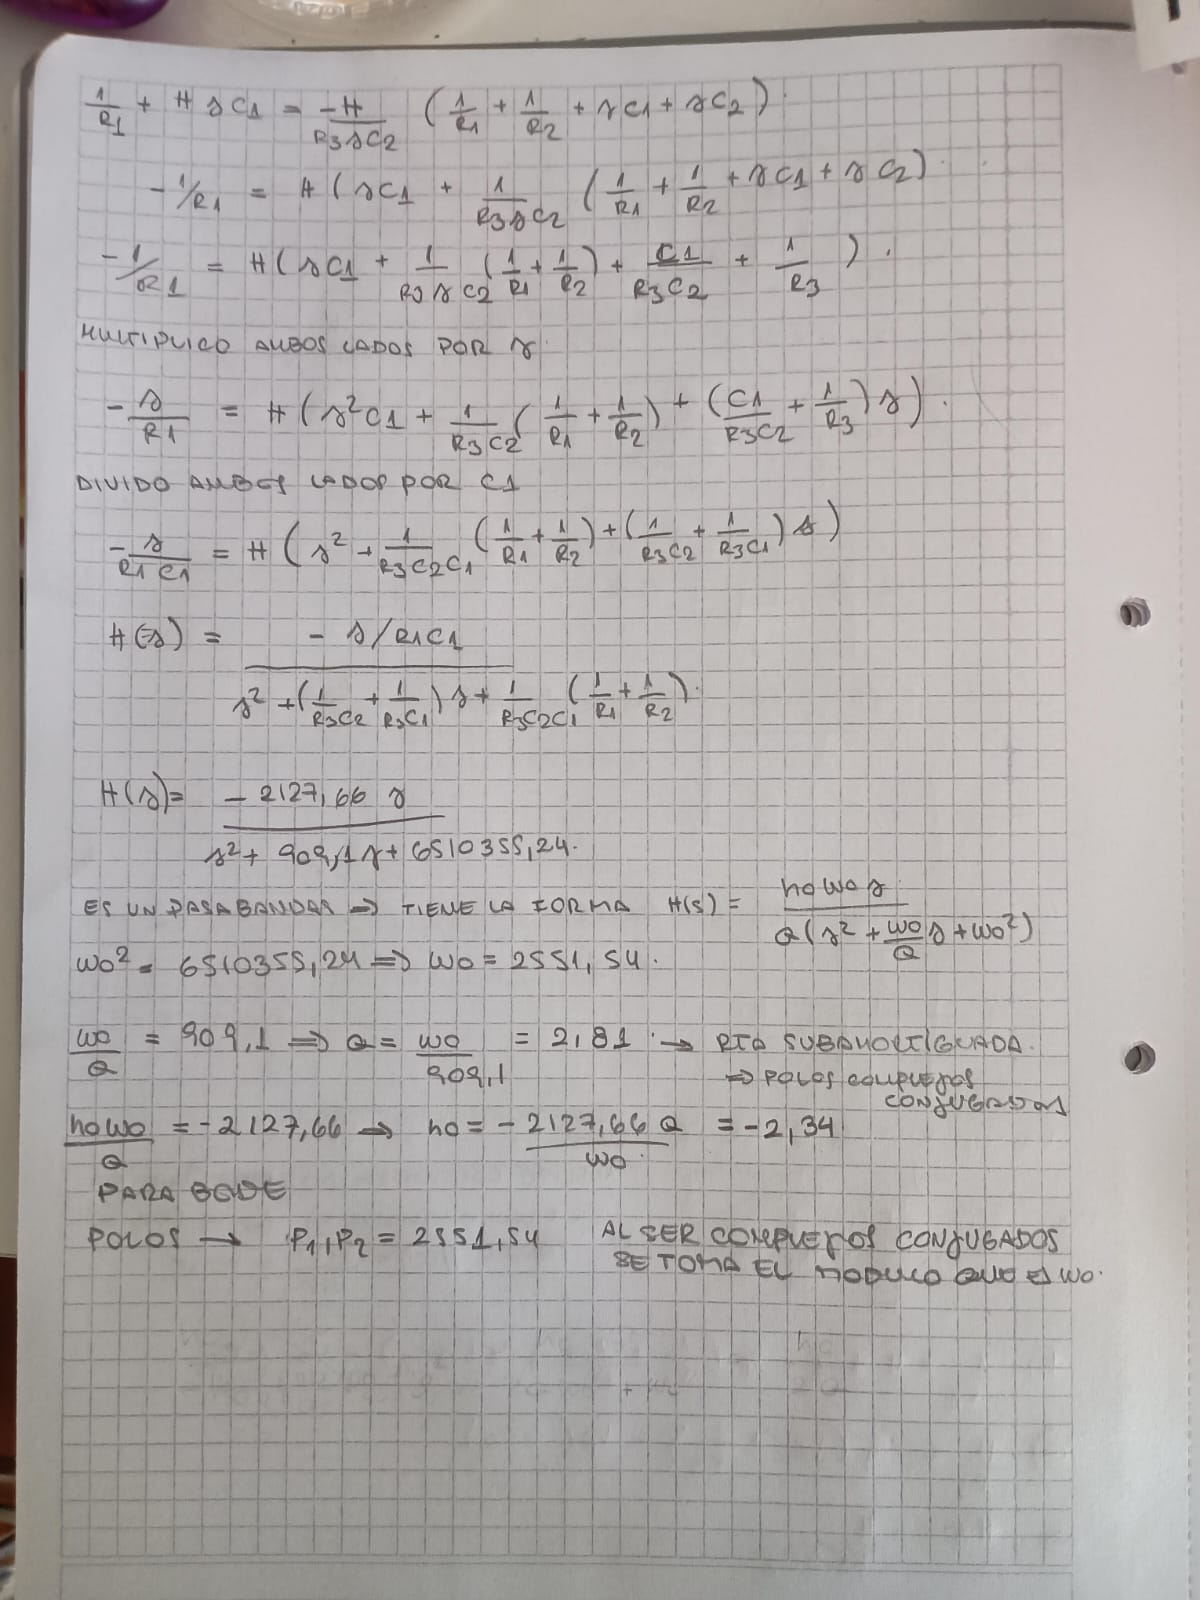 1/R1 + H s C1 = -H/(R3 s C2) (1/R1 + 1/R2 + s C1 + s C2).
-1/R1 = H (s C1 + 1/(R3 s C2) (1/R1 + 1/R2 + s C1 + s C2).
-1/R1 = H (s C1 + 1/(R3 s C2) (1/R1 + 1/R2) + C1/(R3 C2) + 1/R3).
MULTIPLICO AMBOS LADOS POR s.
-s/R1 = H (s² C1 + 1/(R3 C2) (1/R1 + 1/R2) + (C1/(R3 C2) + 1/R3) s).
DIVIDO AMBOS LADOS POR C1
-s/(R1 C1) = H (s² + 1/(R3 C2 C1) (1/R1 + 1/R2) + (1/(R3 C2) + 1/(R3 C1)) s)
H(s) = - s/R1C1
s² + (1/(R3C2) + 1/(R3C1)) s + 1/(R3C2C1) (1/R1 + 1/R2).
H(s) = - 2127,66 s
s² + 909,1 s + 6510355,24.
ES UN PASABANDAS → TIENE LA FORMA H(s) = ho wo s / Q(s² + wo/Q s + wo²)
wo² = 6510355,24 ⇒ wo = 2551,54.
wo/Q = 909,1 ⇒ Q = wo/909,1 = 2,81 → RTA SUBAMORTIGUADA.
⇒ POLOS COMPLEJOS
CONJUGADOS
ho wo/Q = -2127,66 → ho = - 2127,66 Q/wo = -2,34
PARA BODE
POLOS → P1, P2 = 2551,54 AL SER COMPLEJOS CONJUGADOS
SE TOMA EL MODULO QUE ES wo.